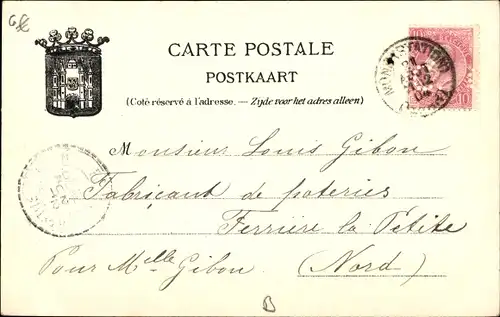 CARTE POSTALE
POSTKAART
(Côté réservé à l'adresse. — Zijde voor het adres alleen)
10
10
MONS (STATION)
Monsieur Louis Gibon
Fabricant de poteries
Ferrière la Petite
Pour Mlle Gibon (Nord)
B